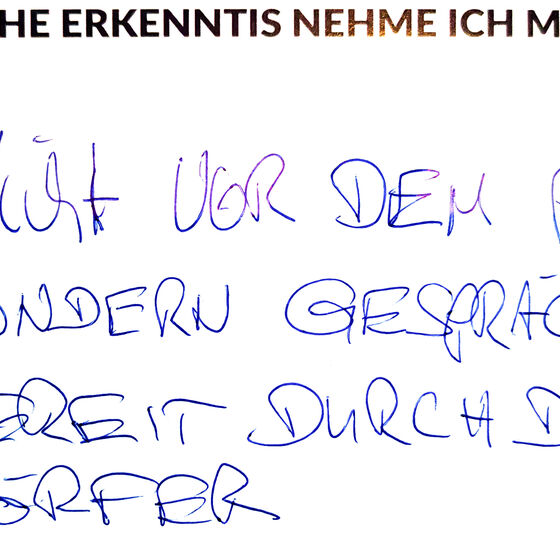 HE ERKENNTIS NEHME ICH M
VOR DEM
ONDERN GESPRÄC
EREIT DURCH D
ÖRFER